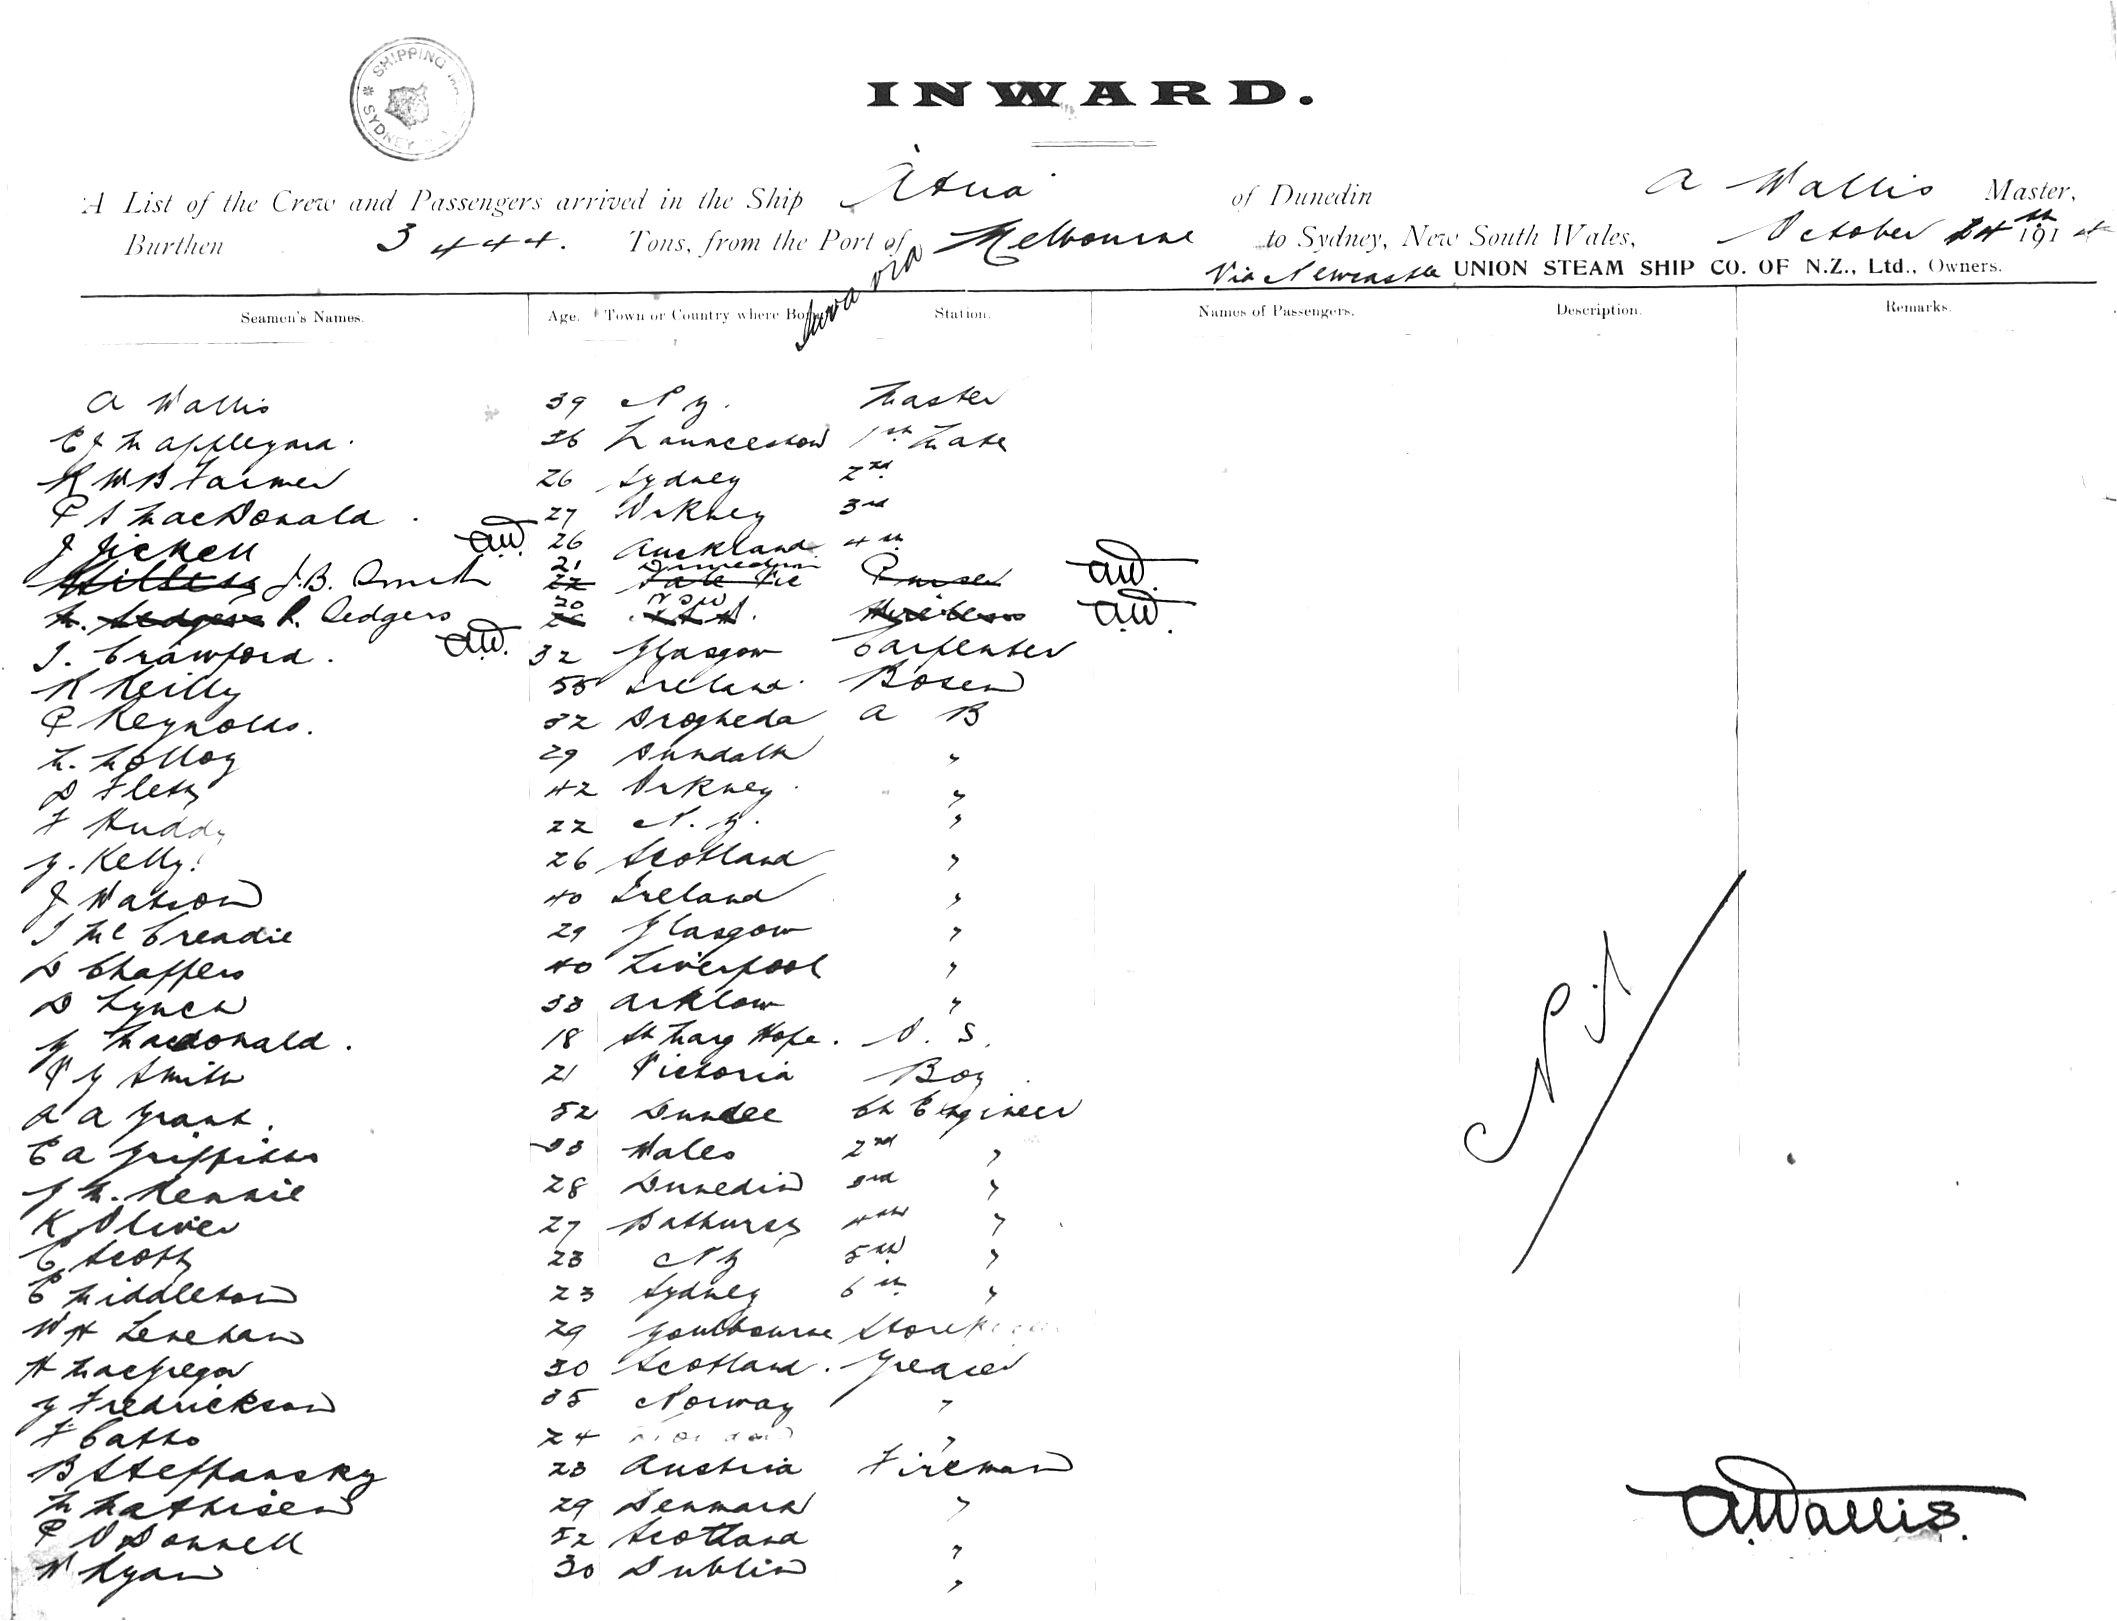 SHIPPING
SYDNEY
INWARD.
A List of the Crew and Passengers arrived in the Ship Atua of Dunedin A Wallis Master,
Burthen 3444. Tons, from the Port of Melbourne to Sydney, New South Wales, October 24th 1914
Suva via
Via Newcastle UNION STEAM SHIP CO. OF N.Z., Ltd., Owners.
Seamen's Names. Age. Town or Country where Born Station. Names of Passengers. Description. Remarks.
A Wallis 39 N Z. Master
E J M Appleyard. 36 Launceston 1st Mate
R W B Farmer 26 Sydney 2nd
P S MacDonald. 27 Orkney 3rd
J Jickell 26 Auckland 4th
J.B. Smith A.W. 21 Dunedin Purser A.W.
R. Sedgers 20 NSW Wireless A.W.
J. Crawford. A.W. 32 Glasgow Carpenter
R Reilly 55 Ireland. Bosen
P Reynolds. 32 Drogheda A B
M. Molloy 29 Dundalk "
D Flett 42 Orkney. "
F Huddy 22 N. Z. "
G. Kelly. 26 Scotland "
J Watson 40 Ireland "
J McCreadie 29 Glasgow "
D Chaffers 40 Liverpool "
D Lynch 38 Arklow "
G Macdonald. 18 St Marg Hope. O. S.
V G Smith 21 Victoria Boy
A A Grant. 52 Dundee Ch Engineer
E A Griffiths 38 Wales 2nd "
J M. Rennie 28 Dunedin 3rd "
K Oliver 27 Bathurst 4th "
C Scott 23 N Z 5th "
C Middleton 23 Sydney 6th "
W H Lenehan 29 Goulbourne Storek
H MacGregor 30 Scotland. Greaser
G Fredrickson 35 Norway "
F Catto 24 "
B Steffansky 23 Austria Fireman
M Mathisen 29 Denmark "
P O Donnell 52 Scotland "
W Ryan 30 Dublin "
Nil
A.Wallis.